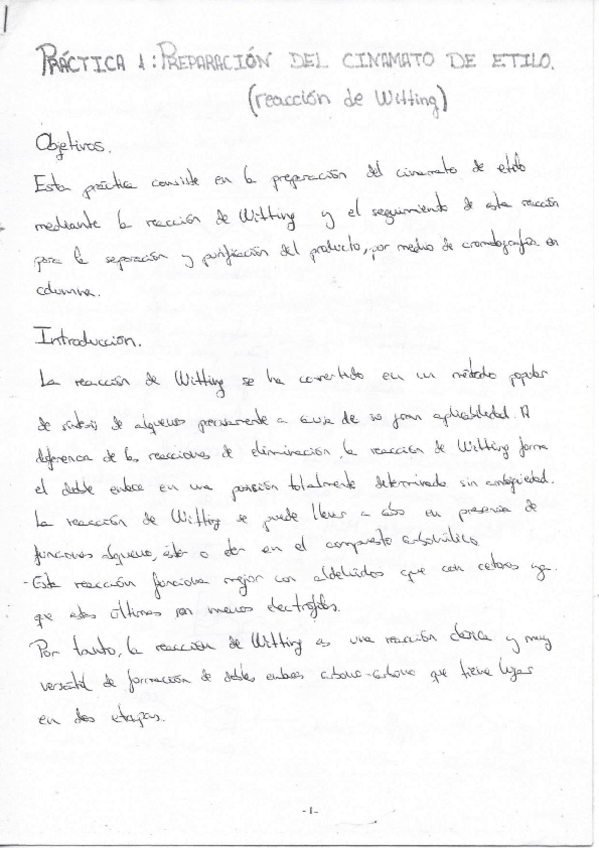 PRÁCTICA 1: PREPARACIÓN DEL CINAMATO DE ETILO.
(reacción de Witting)
Objetivos.
Esta práctica consiste en la preparación del cinamato de etilo
mediante la reacción de Witting y el seguimiento de esta reacción
para la separación y purificación del producto, por medio de cromatografía en
columna.
Introducción.
La reacción de Witting se ha convertido en un método popular
de síntesis de alquenos precisamente a causa de su gran aplicabilidad. A
diferencia de las reacciones de eliminación, la reacción de Witting forma
el doble enlace en una posición totalmente determinada sin ambigüedad.
La reacción de Witting se puede llevar a cabo en presencia de
funciones alqueno, éster o éter en el compuesto carbonílico.
- Esta reacción funciona mejor con aldehídos que con cetonas ya
que estas últimas son menos electrófilas.
Por tanto, la reacción de Witting es una reacción clásica y muy
versátil de formación de dobles enlaces carbono-carbono que tiene lugar
en dos etapas.
-1-